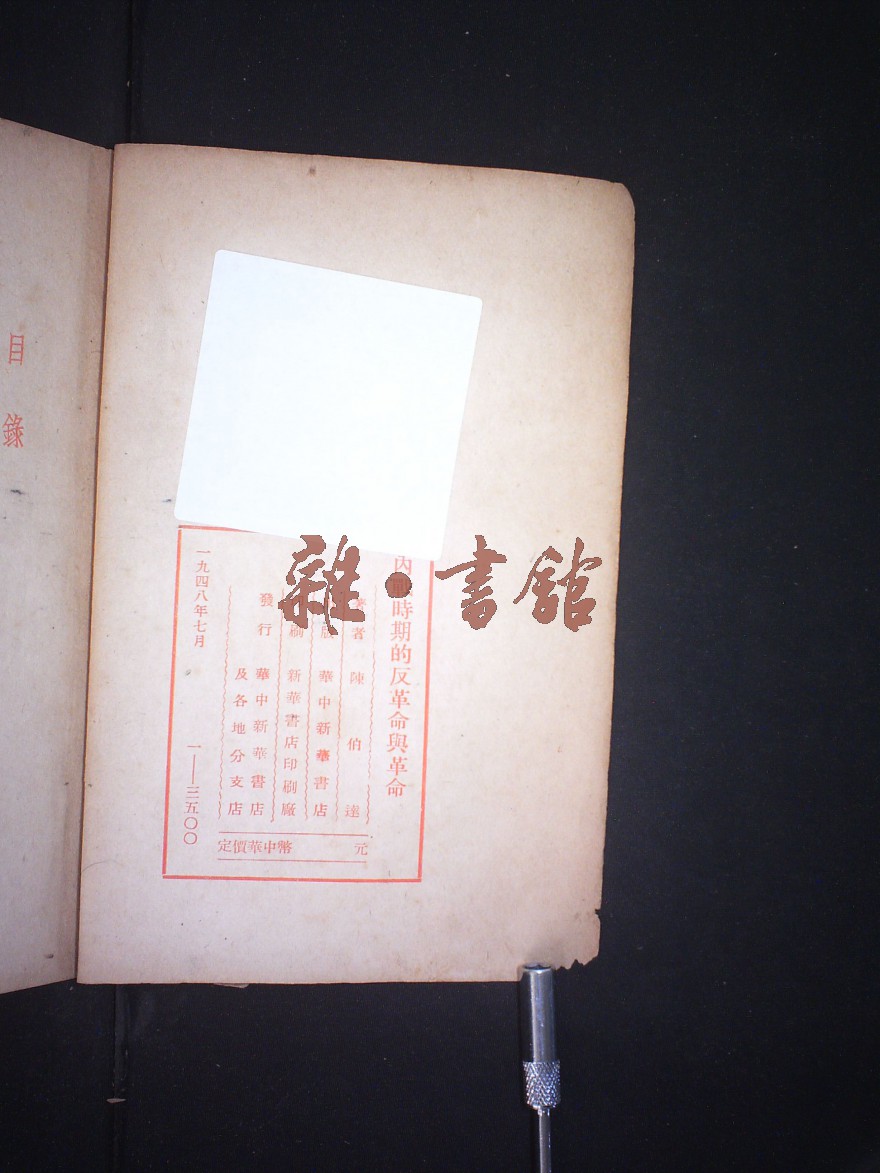 內戰時期的反革命與革命
著者 陳伯達
出版 華中新華書店
印刷 新華書店印刷廠
發行 華中新華書店
及各地分支店
一九四八年七月
一——三五〇〇
定價華中幣 元
目錄
雜·書館